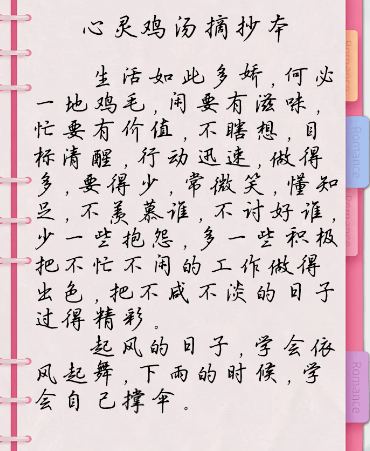 心灵鸡汤摘抄本
生活如此多娇，何必
一地鸡毛，闲要有滋味，
忙要有价值，不瞎想，目
标清醒，行动迅速，做得
多，要得少，常微笑，懂知
足，不羡慕谁，不讨好谁，
少一些抱怨，多一些积极
把不忙不闲的工作做得
出色，把不咸不淡的日子
过得精彩。
起风的日子，学会依
风起舞，下雨的时候，学
会自己撑伞。
Romance
Romance
Romance
Romance